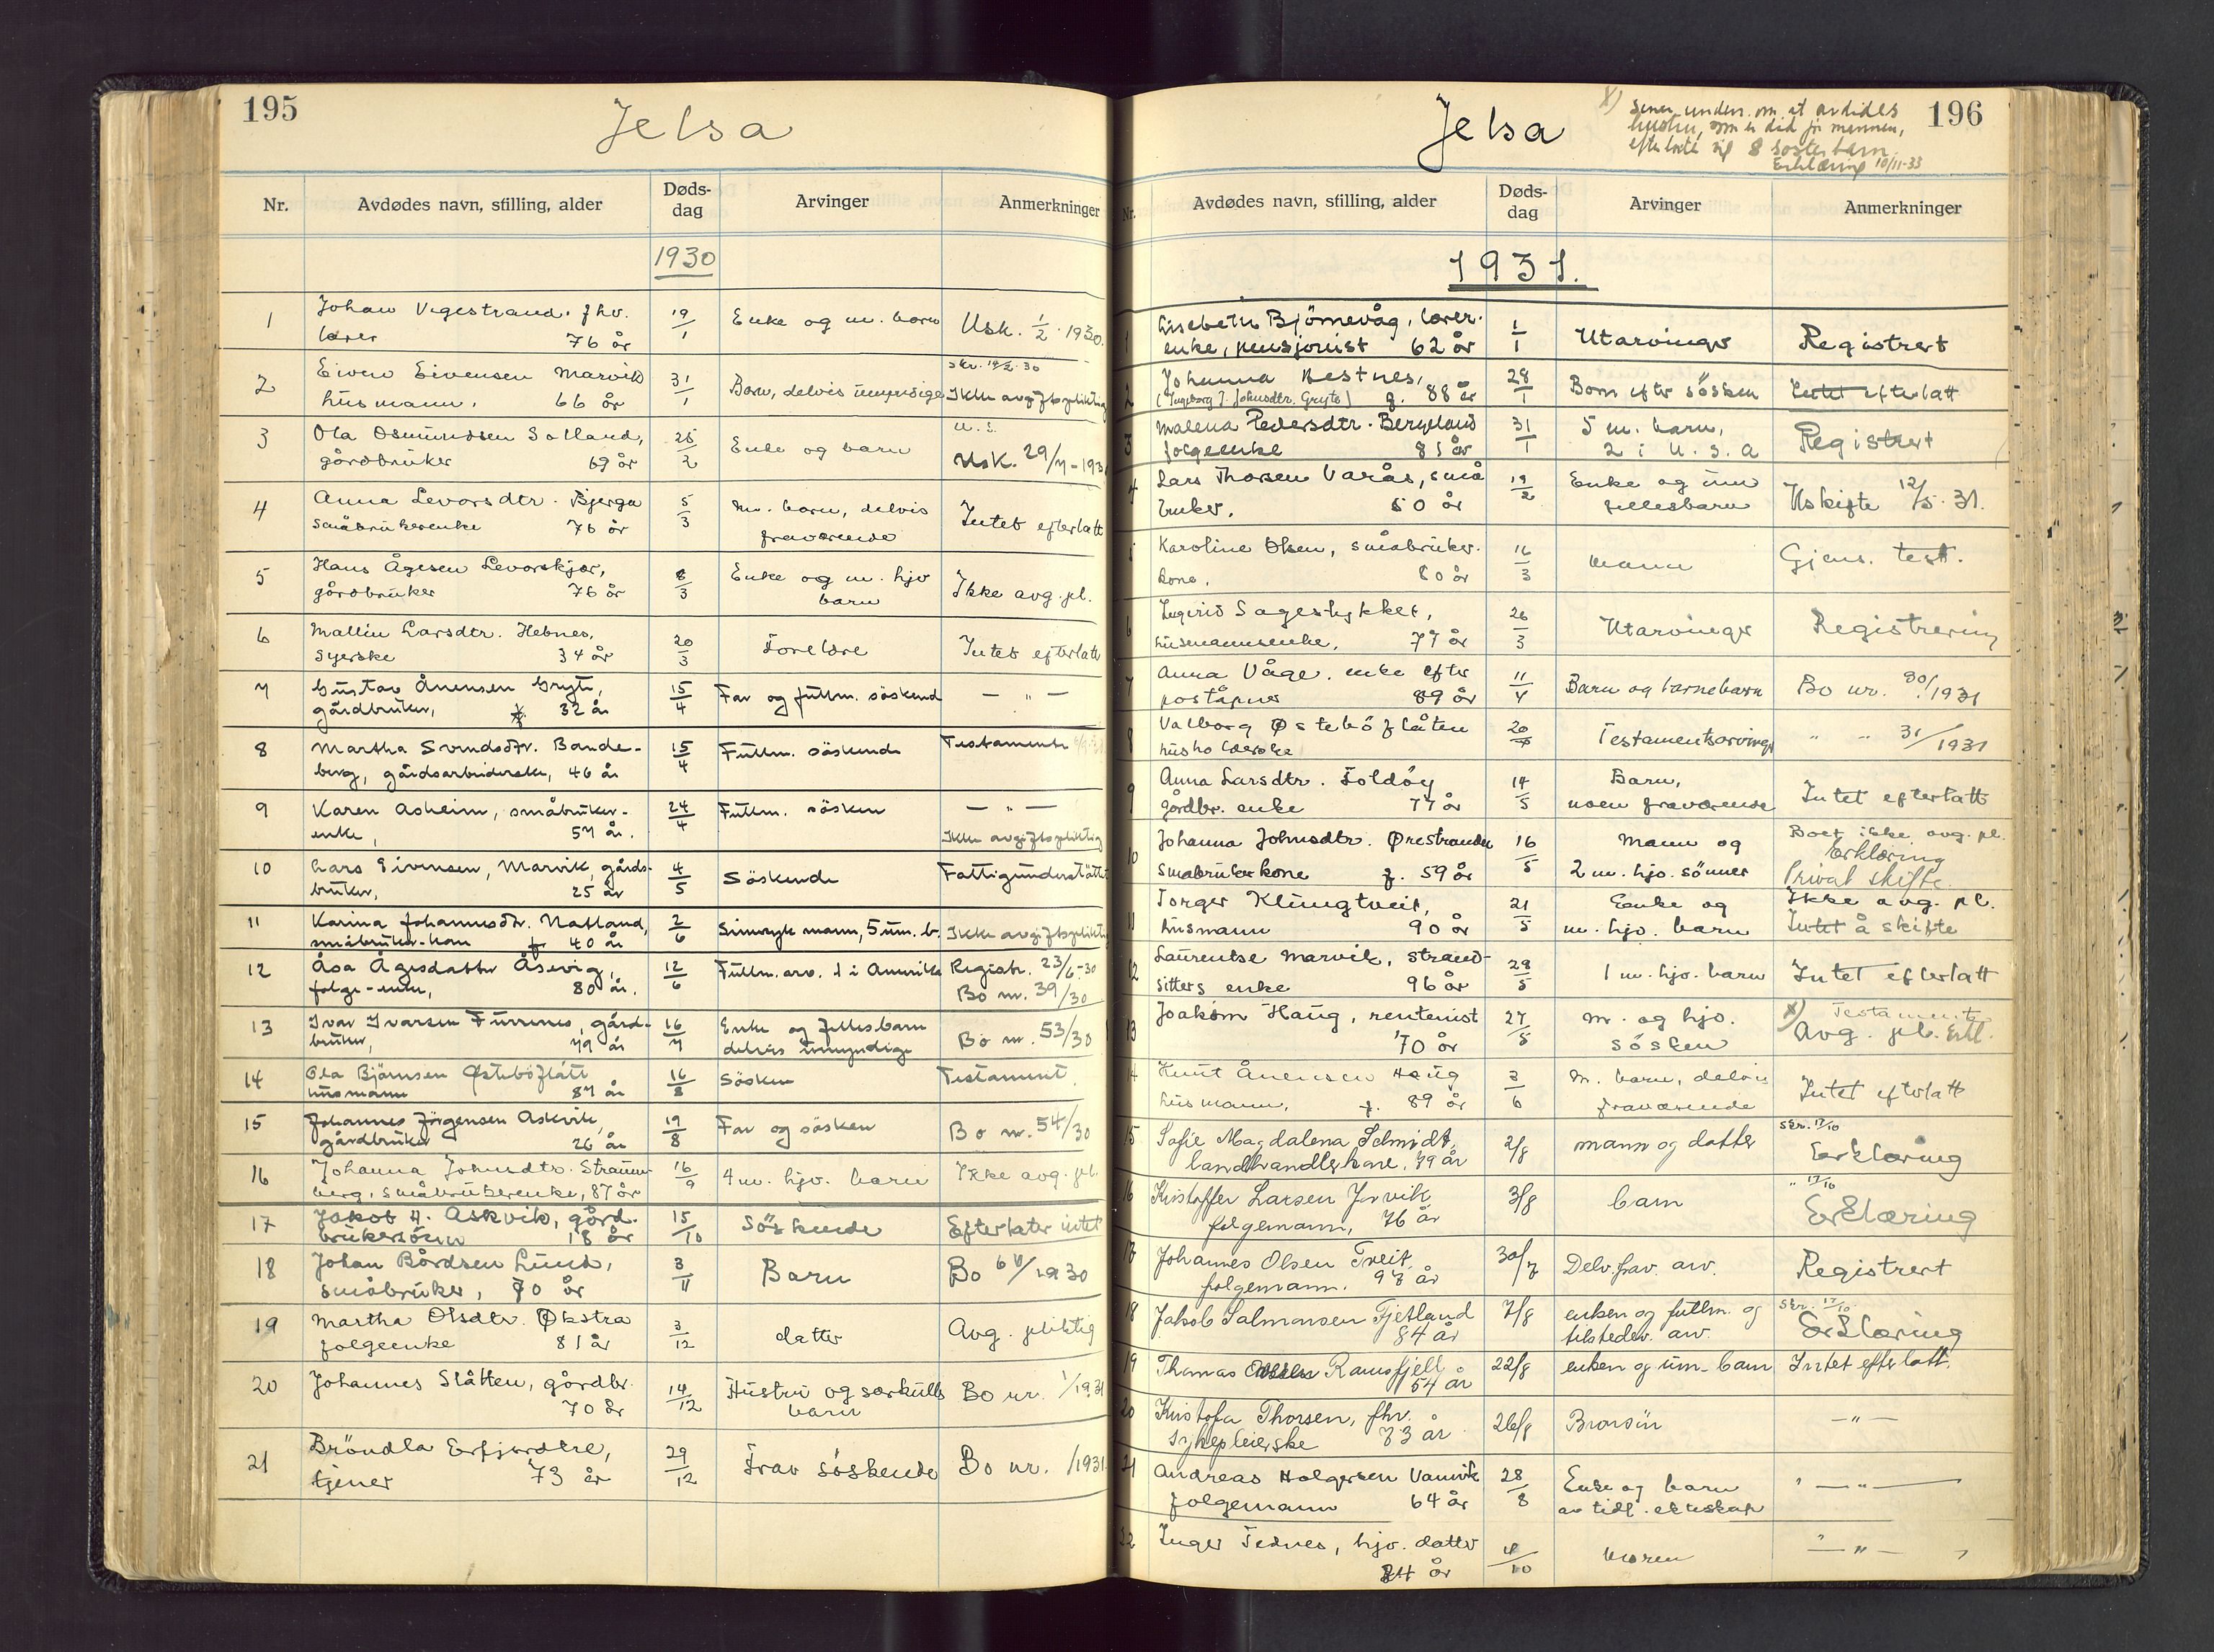 195
Jelsa
Nr. Avdødes navn, stilling, alder Døds-dag Arvinger Anmerkninger
1930
1 Johan Vegestrand. fhv. 19/1 Enke og m. barn Usk. 1/2 1930.
lærer 76 år
2 Eiven Eivensen Marvik 31/1 Barn, delvis umyndige Skr. 14/2 30
husmann. 66 år Ikke avgiftspliktig
3 Ola Osmundsen Sølland, 25/2 Enke og barn
gårdbruker 69 år Usk. 29/7-193
4 Anna Levorsdtr. Bjerga 5/3 m. barn, delvis Intet efterlatt
småbrukerenke 76 år fraværende
5 Hans Ågesen Levorskjær, 8/3 Enke og m. hjv Ikke avg. pl.
gårdbruker 76 år barn
6 Mallin Larsdtr. Hebnes, 20/3 Foreldre Intet efterlatt
syerske 34 år
7 Gustav Ånensen Gryte, 15/4 Far og fullm. söskend — " —
gårdbruker, f. 32 år
8 Martha Svendsdtr. Bande- 15/4 Fullm. söskende Testamente
berg, gårdsarbeiderske, 46 år
9 Karen Asheim, småbruker- 24/4 Fullm. sösken — " —
enke, 57 år. Ikke avgiftspliktig
10 Lars Eivensen, Marvik, gårds- 4/5 Söskende Fattigunderstött
bruker, 25 år
11 Karina Johannesdtr. Natland, 2/6 Sinnsyk mann, 5 um. b. Ikke avgiftspliktig
småbruker-kone f 40 år
12 Åsa Ågesdatter Åsevig, 12/6 Fullm. arv. 1 i Amerika Registr. 23/6-30
folge-enke, 80 år. Bo nr. 39/30
13 Ivar Ivarsen Furrenes, gård- 16/7 Enke og fellesbarn Bo nr. 53/30
bruker, 79 år delvis umyndige
14 Ola Bjørnsen Østebøflått 16/8 Sösken Testament.
husmann 87 år
15 Johannes Jörgensen Askvik, 19/8 Far og sösken Bo nr. 54/30
gårdbruker 26 år
16 Johanna Johnsdtr. Straum- 16/9 4 m. hjv. barn Ikke avg. pl.
berg, småbrukerenke, 87 år
17 Jakob H. Askvik, gård- 15/10 Söskende Efterlater intet
brukersönn 18 år
18 Johan Bårdsen Lund, 3/11 Barn Bo 68/1930
småbruker, 70 år
19 Martha Olsdtr. Økstra 3/12 datter Avg. pliktig
folgeenke 81 år
20 Johannes Slåtten, gårdbr. 14/12 Hustru og særkulls Bo nr. 1/1931
70 år barn
21 Bröndla Erfjordtre, 29/12 Frav söskende Bo nr. /1931.
tjener 73 år
196
Jelsa
x) Senere underr. om at avdödes
hustru, som er död för mannen,
efterlot sig 8 sösterbarn
Erklæring 10/11-33
Nr. Avdødes navn, stilling, alder Døds-dag Arvinger Anmerkninger
1931.
1 Lisebeth Bjørnevåg, lærer- 1/1 Utarvinger Registrert
enke, pensjonist 62 år
2 Johanna Bestnes, 28/1 Barn efter sösken Intet efterlatt
(Ingeborg J. Johnsdtr. Gryte) f. 88 år
3 Malena Pedersdtr. Bergeland 31/1 5 m. barn, Registrert
folgeenke 81 år 2 i U. S. A
4 Lars Thorsen Varås, små 19/2 Enke og um Uskifte 12/5. 31.
bruker. 50 år fellesbarn
5 Karoline Olsen, småbruker- 16/3 mann Gjens. test.
kone. 80 år
6 Ingerid Sagestykket, 26/3 Utarvinger Registrering
husmannsenke, 77 år
7 Anna Våge, enke efter 11/4 Barn og barnebarn Bo nr. 30/1931
poståpner 89 år
8 Valborg Østebøflåten 20/4 Testamentsarvinger " " 31/1931
husholderske
9 Anna Larsdtr. Foldöy 14/5 Barn, Intet efterlatt
gårdbr. enke 77 år noen fraværende
10 Johanna Johnsdtr. Ørestranden 16/5 Mann og Boet ikke avg. pl.
småbrukerkone f. 59 år 2 m. hjv. sönner Erklæring
Privat skifte.
11 Torger Klungtveit, 21/5 Enke og Ikke avg. pl.
husmann 90 år m. hjv. barn Intet å skifte
12 Laurentse Marvik, strand- 28/5 1 m. hjv. barn Intet efterlatt
sitters enke 96 år
13 Joakim Haug, rentenist 27/5 m. og hjv. x) Testamente
70 år sösken Avg. pl. Erkl.
14 Knut Ånensen Haug 3/6 m. barn, delvis Intet efterlatt
husmann, f. 89 år fraværende
15 Sofie Magdalena Schmidt, 2/8 mann og datter skr. 17/10
landhandlerkone, 79 år Erklæring
16 Kristoffer Larsen Jsvik 3/8 barn " 17/10
folgemann, 76 år Erklæring
17 Johannes Olsen Tveit, 30/7 Delv. frav. arv. Registrert
folgemann. 93 år
18 Jakob Salmonsen Tjetland 7/8 enken og fullm. og skr. 17/10
84 år tilstedev. arv. Erklæring
19 Thomas Ramsfjell 22/8 enken og um. barn Intet efterlatt.
54 år
20 Kristofa Thorsen, fhv. 26/8 Brorsön — " —
sykepleierske 73 år
21 Andreas Holgersen Vanvik 28/8 Enke og barn — " —
folgemann 64 år av tidl. ekteskap
22 Inger Tednes, hjv. datter 4/10 moren — " —
24 år